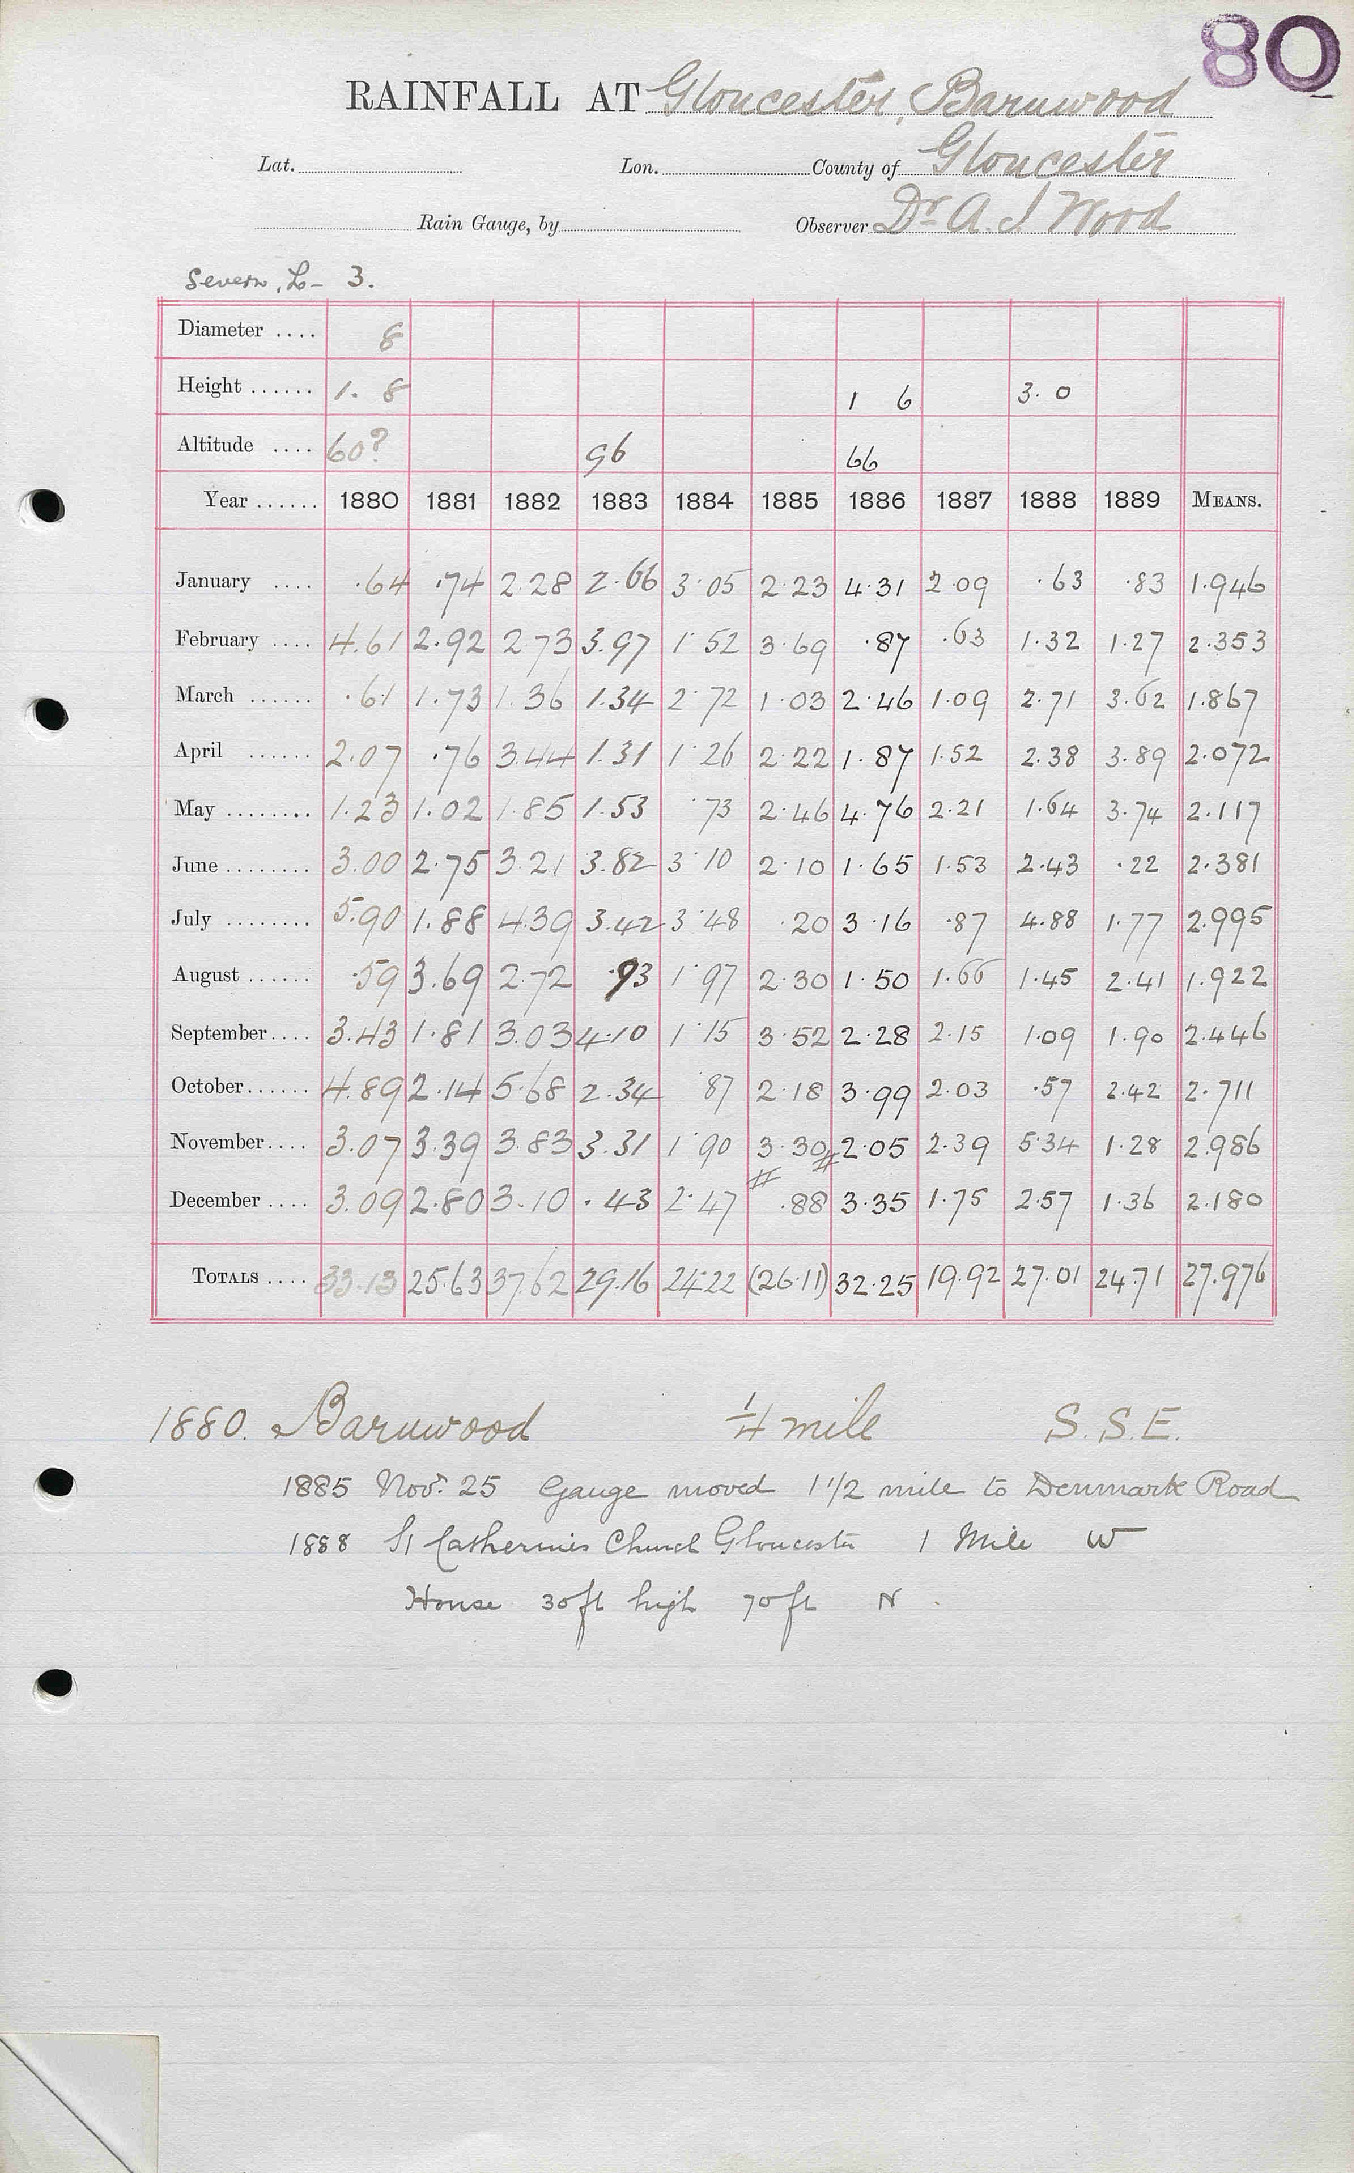 80
RAINFALL AT Gloucester, Barnwood
Lat. Lon. County of Gloucester
Rain Gauge, by Observer Dr A. J Wood
Severn, L- 3.
Diameter .... 8
Height ...... 1. 8 1 6 3. 0
Altitude .... 60? 96 66
Year ...... 1880 1881 1882 1883 1884 1885 1886 1887 1888 1889 MEANS.
January .... .64 .74 2.28 2.66 3.05 2.23 4.31 2.09 .63 .83 1.946
February .... 4.61 2.92 2.73 3.97 1.52 3.69 .87 .63 1.32 1.27 2.353
March ...... .61 1.73 1.36 1.34 2.72 1.03 2.46 1.09 2.71 3.62 1.867
April ...... 2.07 .76 3.44 1.31 1.26 2.22 1.87 1.52 2.38 3.89 2.072
May ........ 1.23 1.02 1.85 1.53 .73 2.46 4.76 2.21 1.64 3.74 2.117
June ........ 3.00 2.75 3.21 3.82 3.10 2.10 1.65 1.53 2.43 .22 2.381
July ........ 5.90 1.88 4.39 3.42 3.48 .20 3.16 .87 4.88 1.77 2.995
August ...... .59 3.69 2.72 .93 1.97 2.30 1.50 1.66 1.45 2.41 1.922
September.... 3.43 1.81 3.03 4.10 1.15 3.52 2.28 2.15 1.09 1.90 2.446
October...... 4.89 2.14 5.68 2.34 .87 2.18 3.99 2.03 .57 2.42 2.711
November.... 3.07 3.39 3.83 3.31 1.90 3.30 2.05 2.39 5.34 1.28 2.986
December .... 3.09 2.80 3.10 .43 2.47 .88 3.35 1.75 2.57 1.36 2.180
TOTALS .... 33.13 25.63 37.62 29.16 24.22 (26.11) 32.25 19.92 27.01 24.71 27.976
1880. Barnwood 1/4 mile S.S.E.
1885 Novr. 25 Gauge moved 1 1/2 mile to Denmark Road
1888 St Catherines Church Gloucester 1 Mile W
House 30ft high 70ft N.